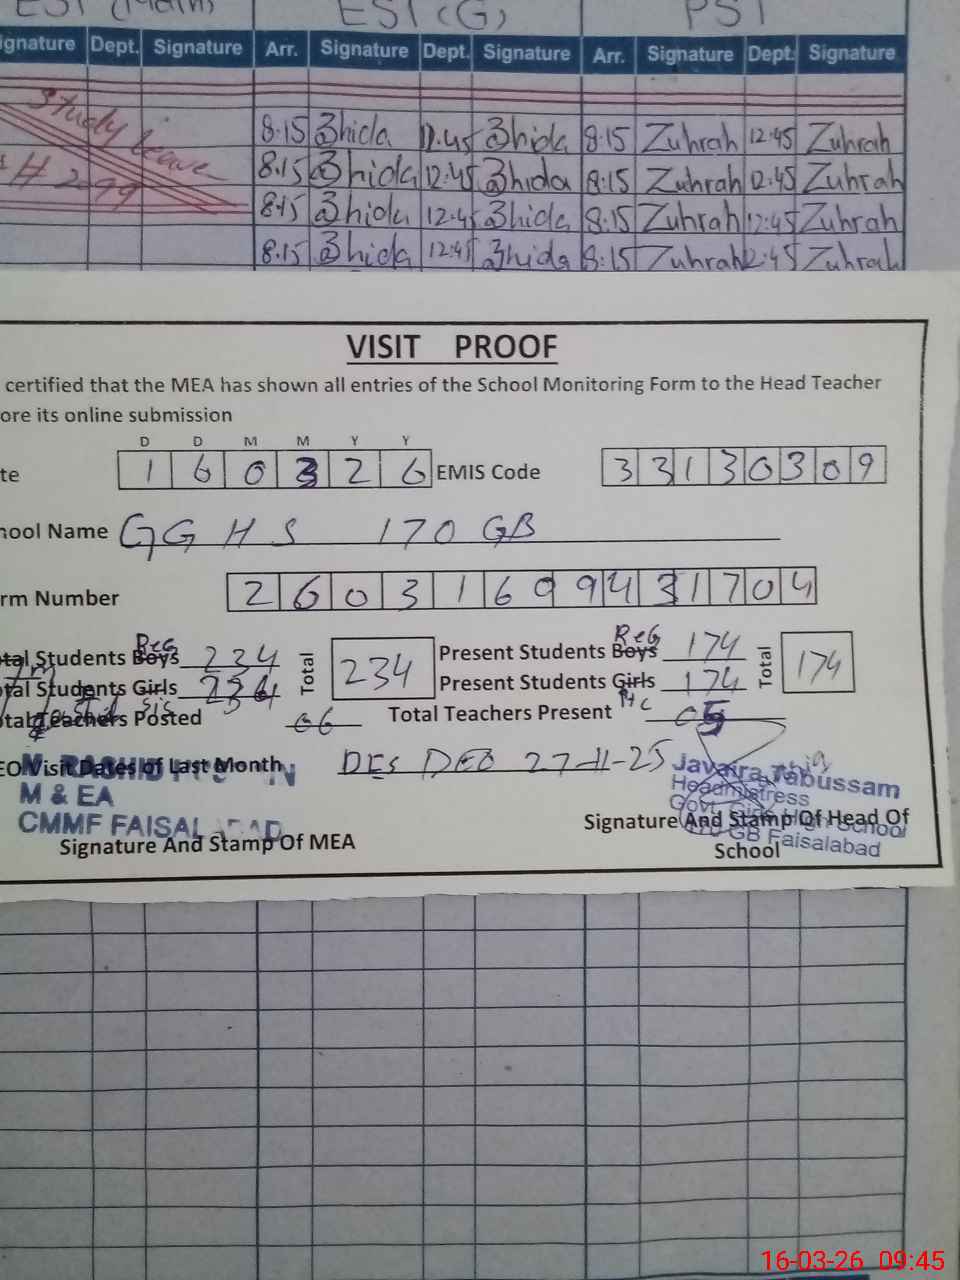 EST (Main) EST (G) PST
ignature Dept. Signature Arr. Signature Dept. Signature Arr. Signature Dept. Signature
Study leave
8.15 Shida 12.45 Shida 8:15 Zuhrah 12:45 Zuhrah
8.15 Shida 12:45 Shida 8:15 Zuhrah 12:45 Zuhrah
8:15 Shida 12:45 Shida 8:15 Zuhrah 12:45 Zuhrah
8.15 Shida 12:45 Shida 8:15 Zuhrah 12:45 Zuhrah
VISIT PROOF
certified that the MEA has shown all entries of the School Monitoring Form to the Head Teacher
ore its online submission
D D M M Y Y
te 1 6 0 3 2 6 EMIS Code 3 3 1 3 0 3 0 9
hool Name GGHS 170 GB
rm Number 2 6 0 3 1 6 0 9 4 3 1 7 0 4
Reg Reg
tal Students Boys 234 Total 234 Present Students Boys 174 Total 174
tal Students Girls 234 Present Students Girls 174
otal Teachers Posted 06 Total Teachers Present 05
EO Visit Dates of Last Month DES DEO 27-11-25
M & EA
CMMF FAISALABAD
Signature And Stamp Of MEA
Javaira Tabussam
Headmistress
Govt. Girls High School
170 GB Faisalabad
Signature And Stamp Of Head Of
School
16-03-26 09:45